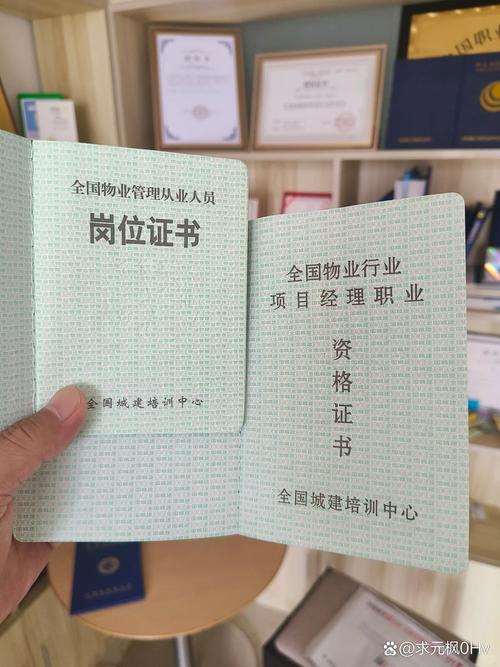 全国物业管理从业人员
岗位证书
全国城建培训中心
全国物业行业
项目经理职业
资
格
证
书
全国城建培训中心
全国职业
@求元枫0Hv